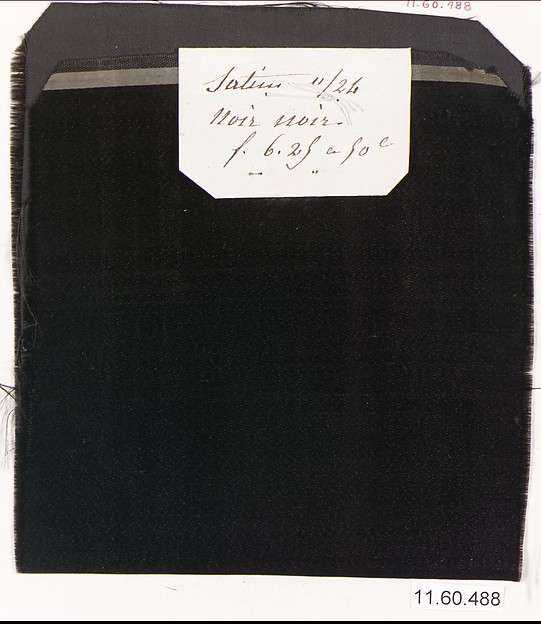 11.60.488
Satin "/24
noir noir.
f. 6.25 a 50 c
11.60.488